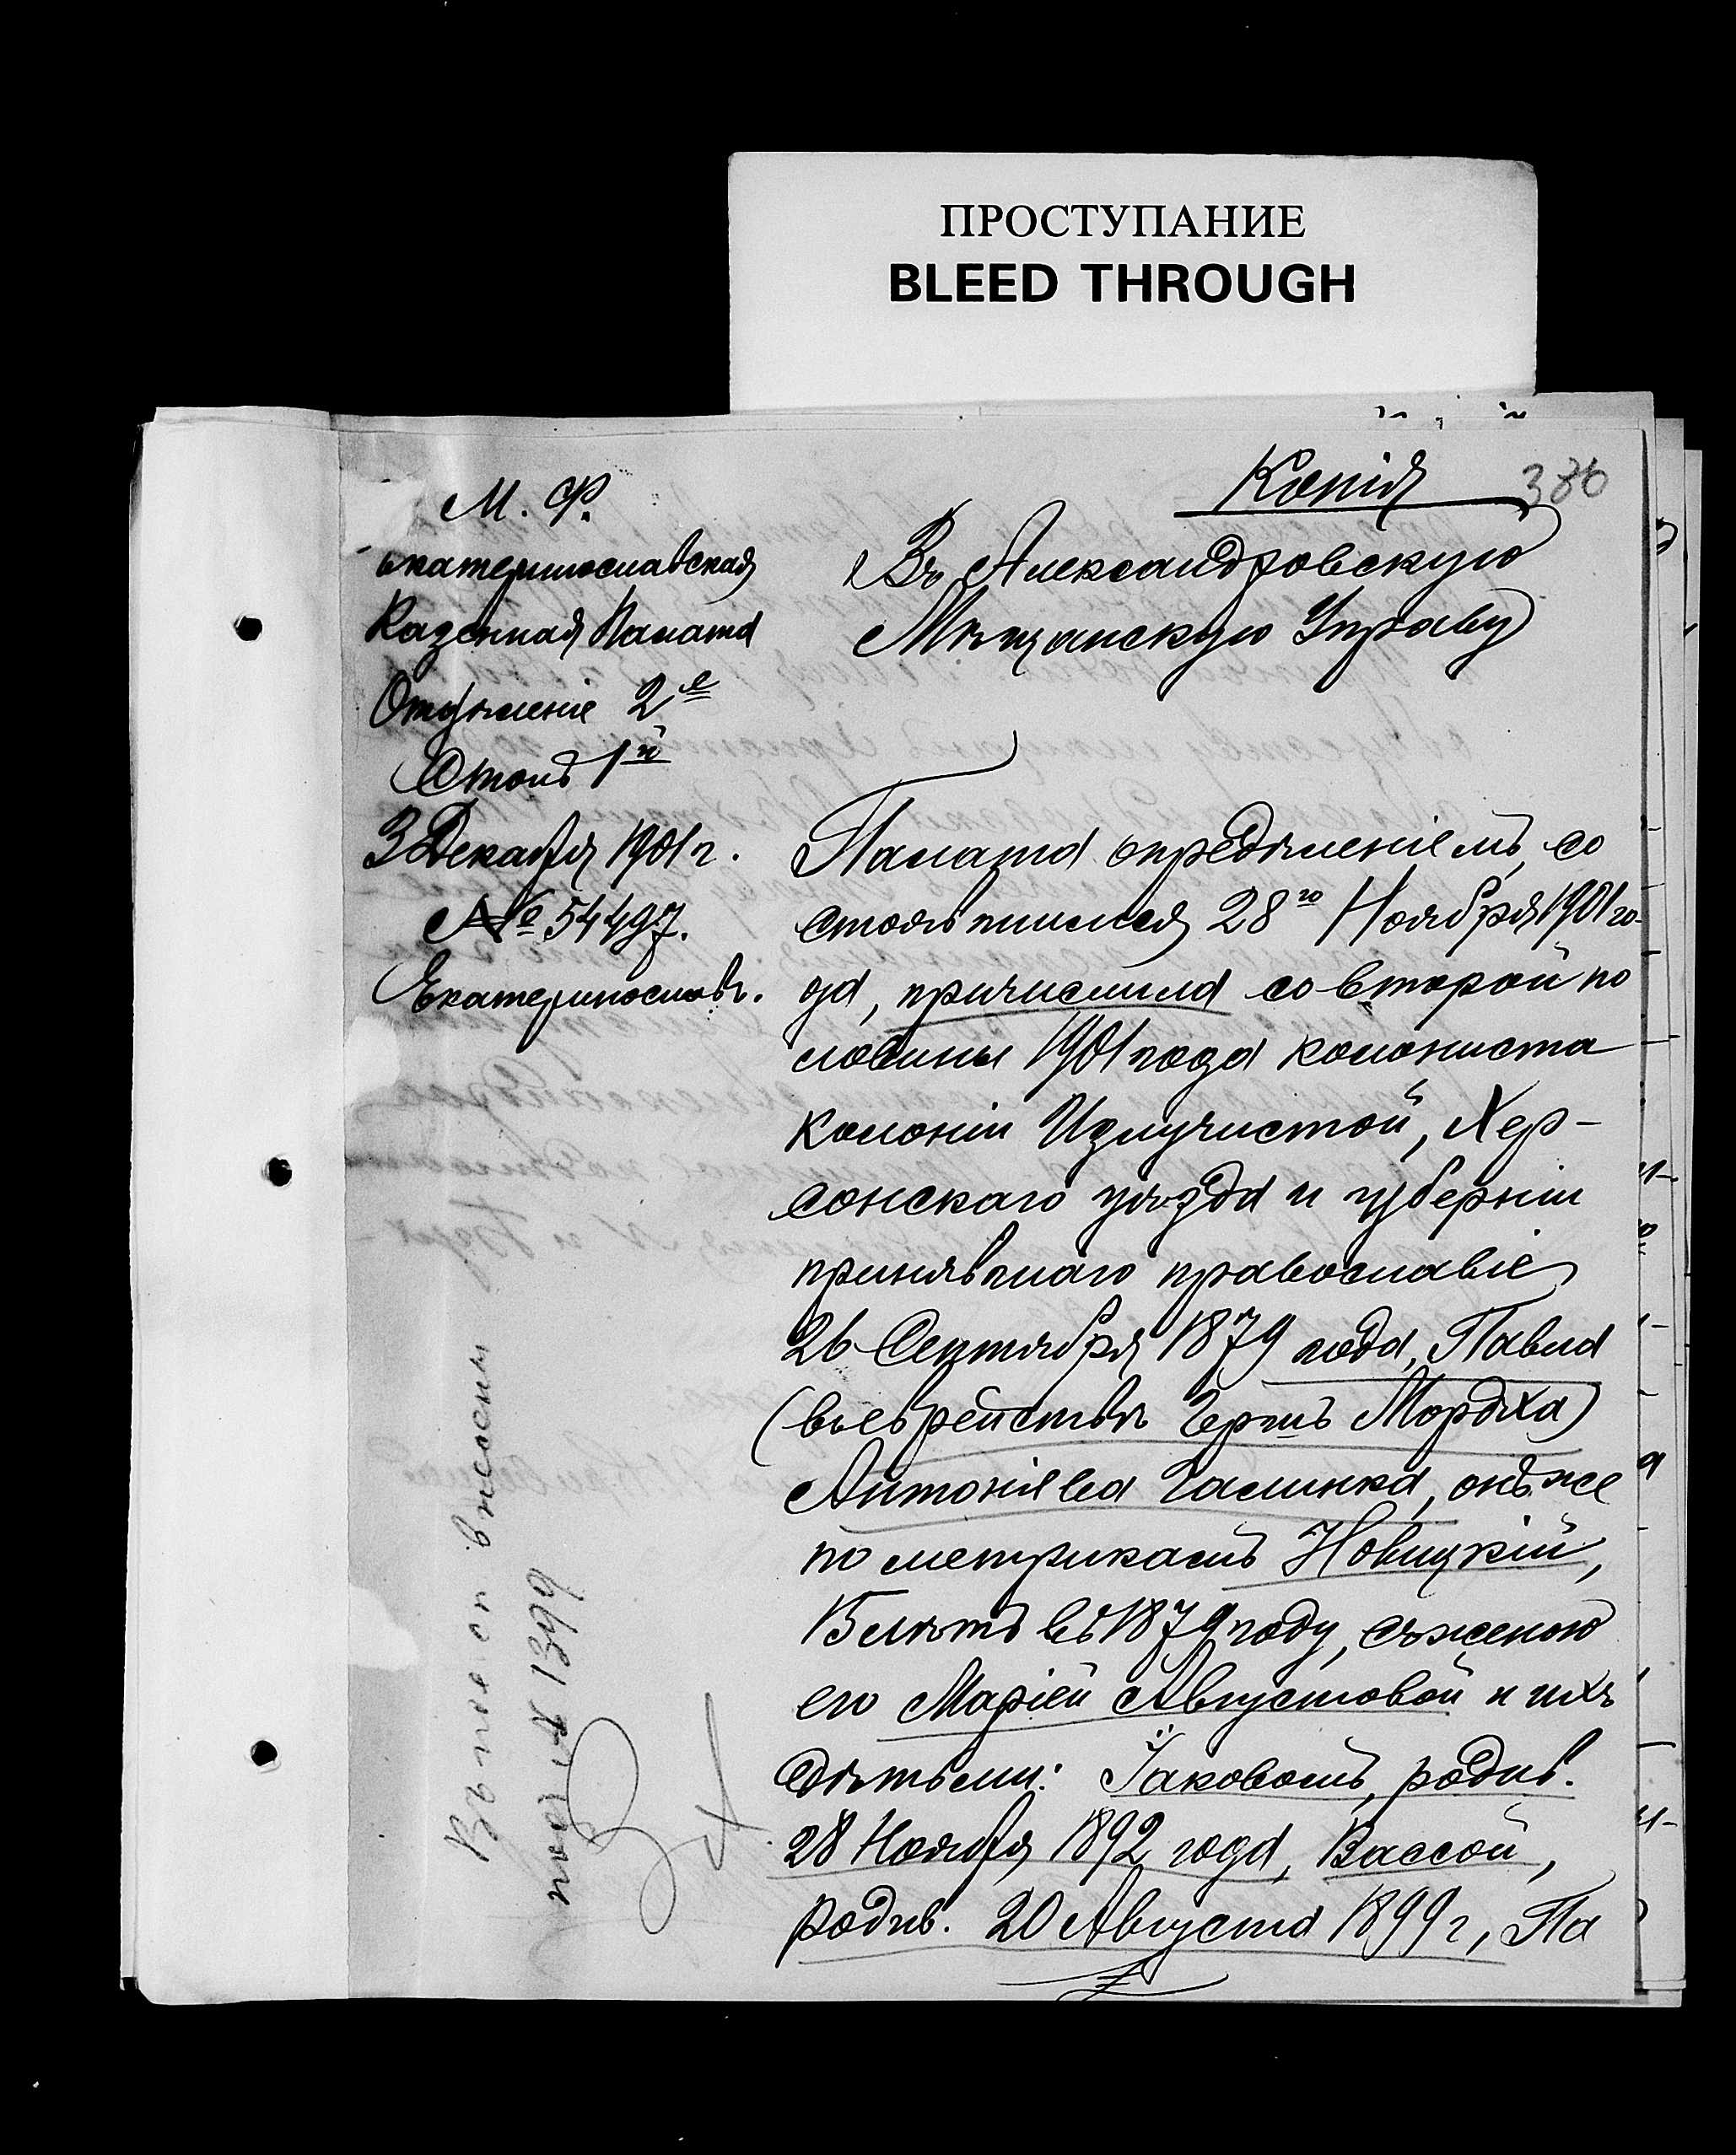 ПРОСТУПАНИЕ
BLEED THROUGH
Копія
386
М. Ф.
Екатеринославская
Казенная Палата
Отдѣленіе 2е
Столъ 1й
3 Декабря 1901 г.
№ 54497.
Екатеринославъ.
Въ Александровскую
Мѣщанскую Управу
Палата опредѣленіемъ, со
стоявшимся 28го Ноября 1901 го-
да, причислила со второй по
ловины 1901 года колониста
колоніи Излучистой, Хер-
сонскаго уѣзда и губерніи
принявшаго православіе
26 Сентября 1879 года, Павла
(въ еврействѣ Гершъ Мордха)
Антоніева Галинка, онъ же
по метрикамъ Новицкій,
15 лѣтъ въ 1879 году, съ женою
его Маріей Августовой и ихъ
дѣтьми: Іаковомъ, родив.
28 Ноября 1892 года, Вассой,
родив. 20 Августа 1899 г, Па
внесены
№ 1399